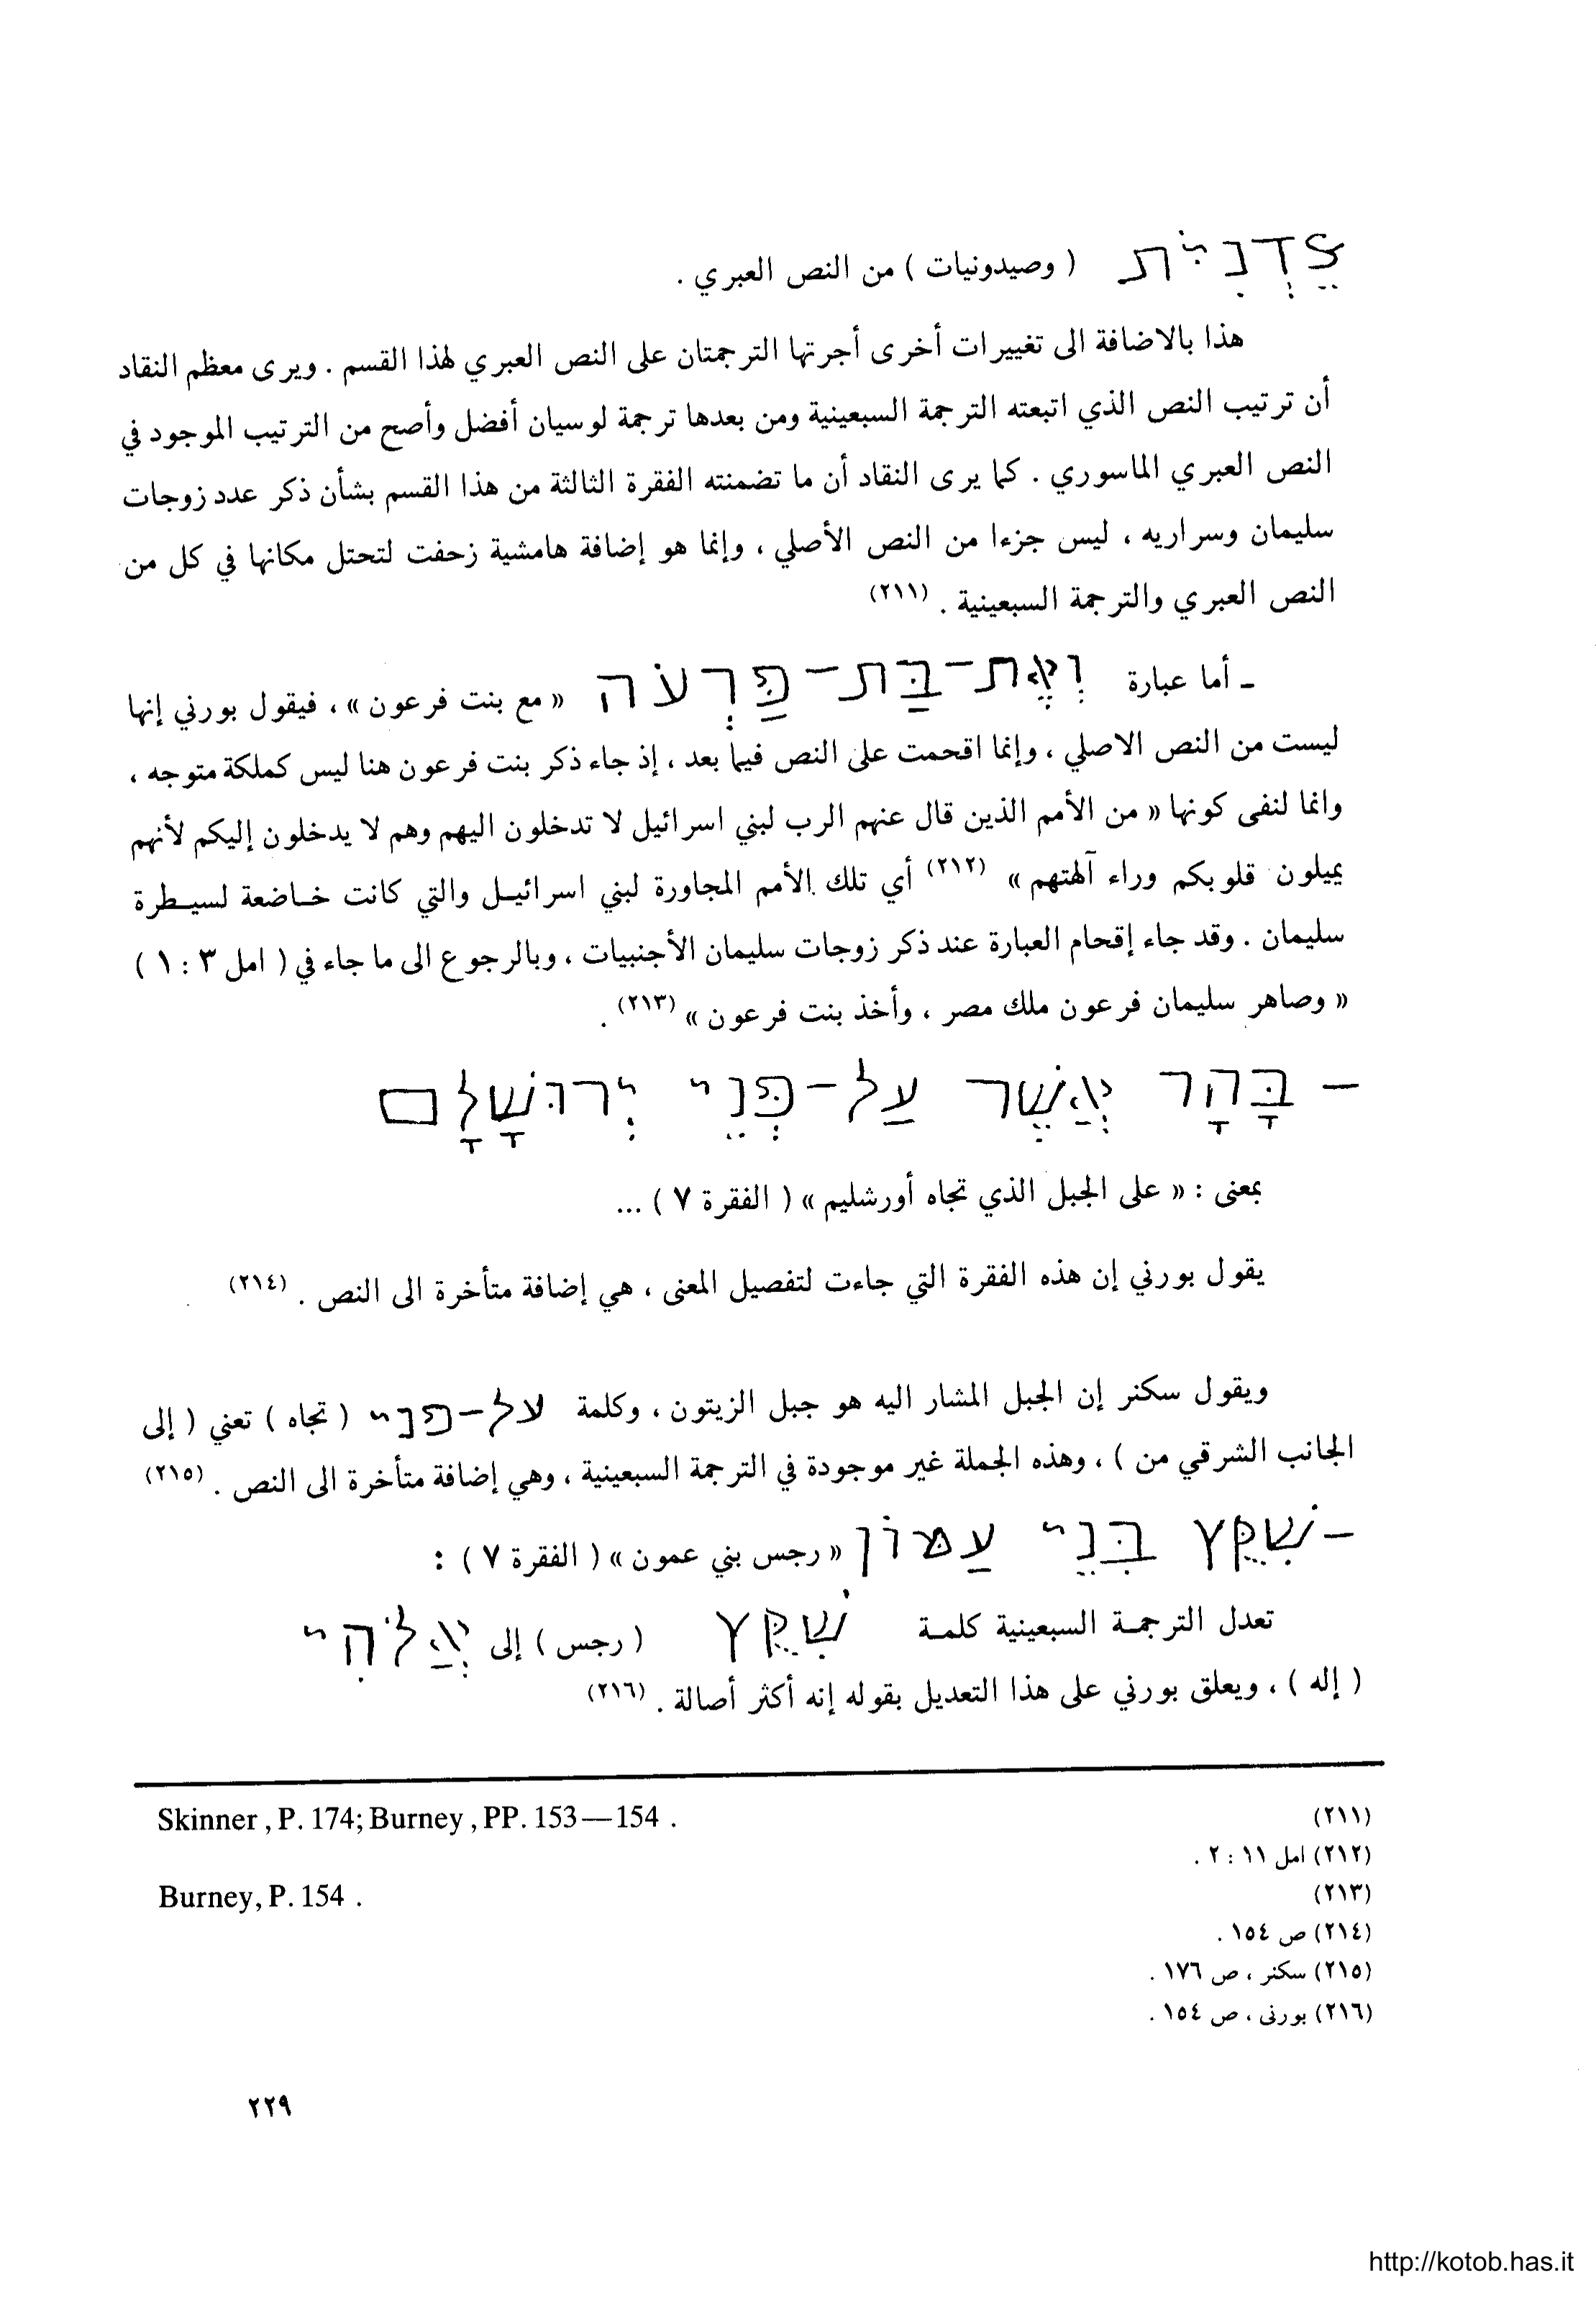 צֵדְנִיֹּת ( وصيدونيات ) من النص العبري .
هذا بالاضافة الى تغييرات أخرى أجرتها الترجمتان على النص العبري لهذا القسم . ويرى معظم النقاد
أن ترتيب النص الذي اتبعته الترجمة السبعينية ومن بعدها ترجمة لوسيان أفضل وأصح من الترتيب الموجود في
النص العبري الماسوري . كما يرى النقاد أن ما تضمنته الفقرة الثالثة من هذا القسم بشأن ذكر عدد زوجات
سليمان وسراريه ، ليس جزءا من النص الأصلي ، وإنما هو إضافة هامشية زحفت لتحتل مكانها في كل من
النص العبري والترجمة السبعينية . (٢١١)
ـ أما عبارة וְאֶת-בַּת-פַּרְעֹה « مع بنت فرعون » ، فيقول بورني إنها
ليست من النص الاصلي ، وإنما اقحمت على النص فيما بعد ، إذ جاء ذكر بنت فرعون هنا ليس كملكة متوجه ،
وانما لنفى كونها « من الأمم الذين قال عنهم الرب لبني اسرائيل لا تدخلون اليهم وهم لا يدخلون إليكم لأنهم
يميلون قلوبكم وراء آلهتهم » (٢١٢) أي تلك الأمم المجاورة لبني اسرائيل والتي كانت خاضعة لسيطرة
سليمان . وقد جاء إقحام العبارة عند ذكر زوجات سليمان الأجنبيات ، وبالرجوع الى ما جاء في ( امل ٣ : ١ )
« وصاهر سليمان فرعون ملك مصر ، وأخذ بنت فرعون » (٢١٣) .
– בָּהָר אֲשֶׁר עַל-פְּנֵי יְרוּשָׁלָם
بمعنى : « على الجبل الذي تجاه أورشليم » ( الفقرة ٧ ) ...
يقول بورني إن هذه الفقرة التي جاءت لتفصيل المعنى ، هي إضافة متأخرة الى النص . (٢١٤)
ويقول سكنر إن الجبل المشار اليه هو جبل الزيتون ، وكلمة על-פני ( تجاه ) تعني ( إلى
الجانب الشرقي من ) ، وهذه الجملة غير موجودة في الترجمة السبعينية ، وهي إضافة متأخرة الى النص . (٢١٥)
– שִׁקֻּץ בְּנֵי עַמּוֹן « رجس بني عمون » ( الفقرة ٧ ) :
تعدل الترجمة السبعينية كلمة שִׁקֻּץ ( رجس ) إلى אֱלֹהֵי
( إله ) ، ويعلق بورني على هذا التعديل بقوله إنه أكثر أصالة . (٢١٦)
(٢١١) Skinner , P. 174; Burney , PP. 153—154 .
(٢١٢) امل ١١ : ٢ .
(٢١٣) Burney, P. 154 .
(٢١٤) ص ١٥٤ .
(٢١٥) سكنر ، ص ١٧٦ .
(٢١٦) بورنى ، ص ١٥٤ .
٢٢٩
http://kotob.has.it